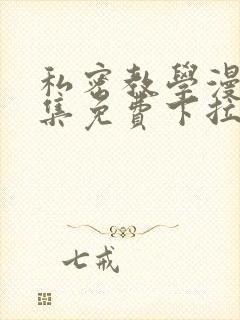 私密教學漫
集免費下拉
七戒